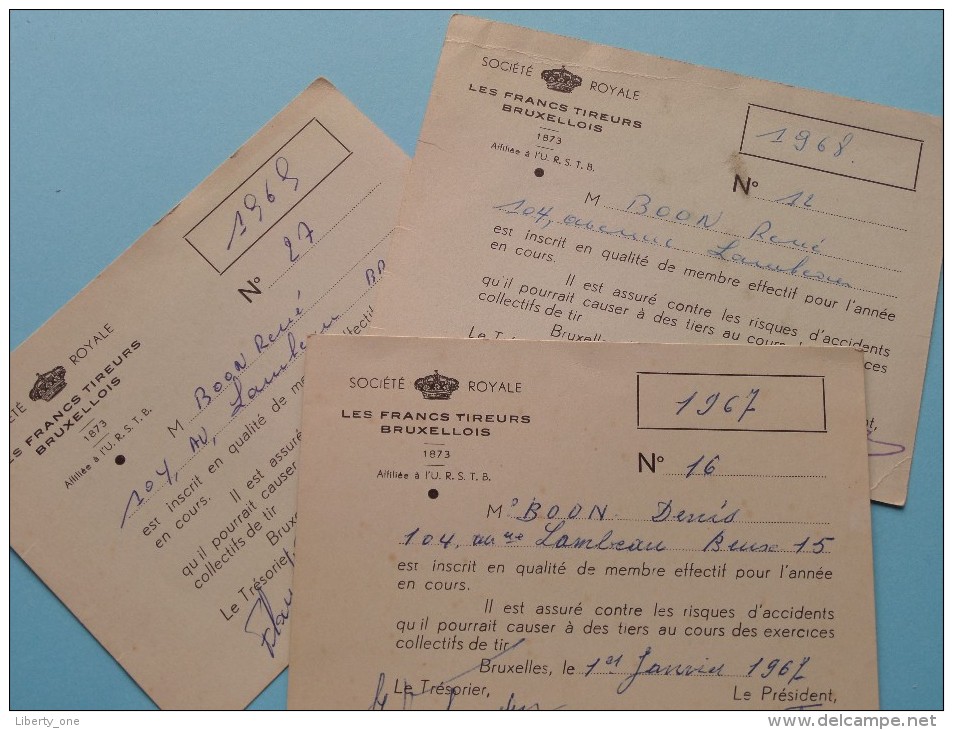 SOCIÉTÉ ROYALE
LES FRANCS TIREURS
BRUXELLOIS
1873
Affiliée à l'U. R. S. T. B.
1968.
N° 12
M BOON René
104, avenue Lambeau
est inscrit en qualité de membre effectif pour l'année
en cours.
Il est assuré contre les risques d'accidents
qu'il pourrait causer à des tiers au cours
collectifs de tir
Bruxelles
ROYALE
FRANCS TIREURS
BRUXELLOIS
1873
Affiliée à l'U. R. S. T. B.
1969
N° 27
M BOON René
104, AV, Lambeau
est inscrit en qualité de
en cours.
Il est assuré
qu'il pourrait causer
collectifs de tir
Le Trésorier,
SOCIÉTÉ ROYALE
LES FRANCS TIREURS
BRUXELLOIS
1873
Affiliée à l'U. R. S. T. B.
1967
N° 16
Mr BOON Denis
104, Lambeau Brux 15
est inscrit en qualité de membre effectif pour l'année
en cours.
Il est assuré contre les risques d'accidents
qu'il pourrait causer à des tiers au cours des exercices
collectifs de tir
Bruxelles, le 1er Janvier 1967
Le Trésorier,
Le Président,
Liberty_one
delcampe.net